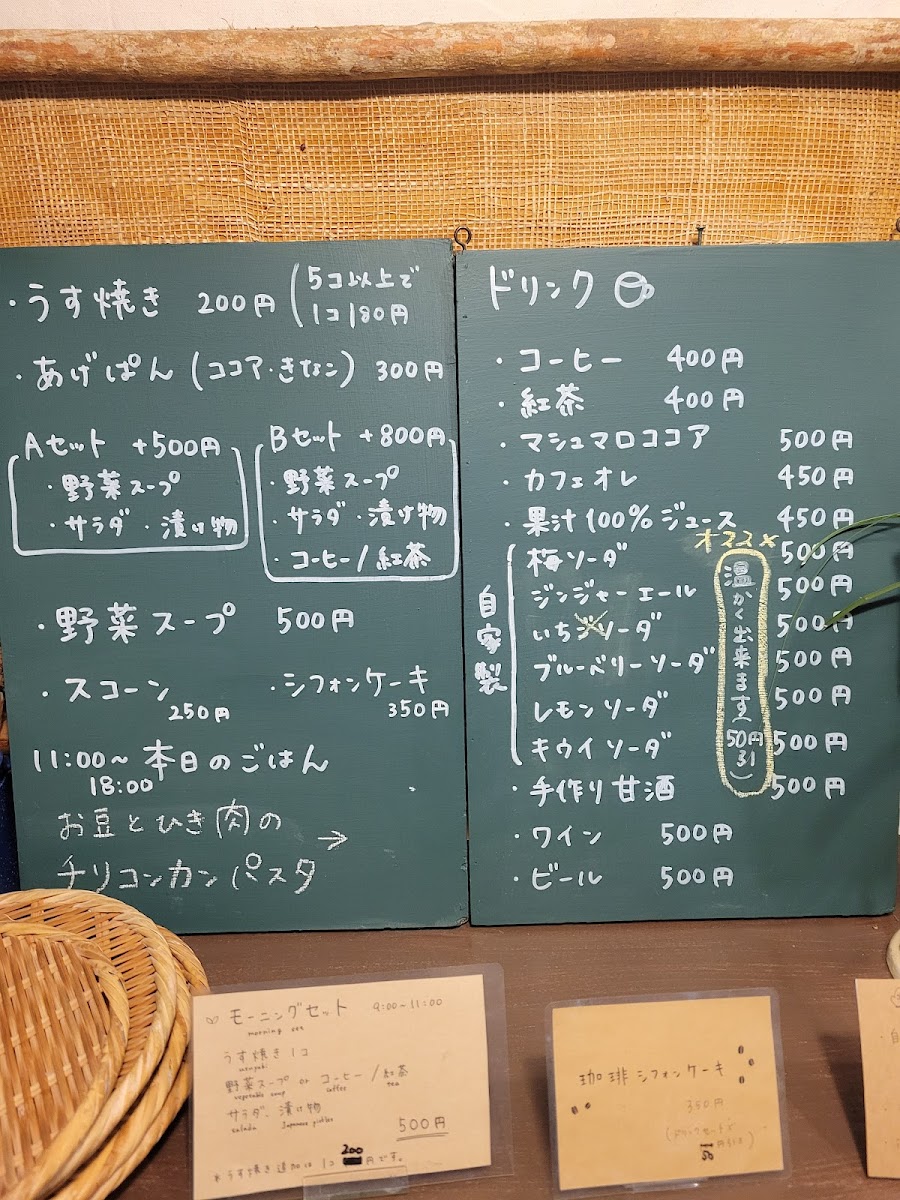 ・うす焼き 200円 (5コ以上で
1コ180円
・あげぱん (ココア・きなこ) 300円
Aセット +500円
・野菜スープ
・サラダ・漬け物
Bセット +800円
・野菜スープ
・サラダ・漬け物
・コーヒー/紅茶
・野菜スープ 500円
・スコーン
250円
・シフォンケーキ
350円
11:00~ 本日のごはん
18:00
お豆とひき肉の
チリコンカンパスタ →
ドリンク
・コーヒー 400円
・紅茶 400円
・マシュマロココア 500円
・カフェオレ 450円
・果汁100%ジュース 450円
オススメ
自家製
梅ソーダ 500円
ジンジャーエール 500円
いちごソーダ 500円
ブルーベリーソーダ 500円
レモンソーダ 500円
キウイソーダ 500円
温かく出来ます(50円引)
・手作り甘酒 500円
・ワイン 500円
・ビール 500円
モーニングセット 9:00~11:00
morning set
うす焼き1コ
usuyaki
野菜スープ or コーヒー/紅茶
vegetable soup coffee tea
サラダ、漬け物
salada Japanese pickles
500円
*うす焼き追加は1コ200円です。
珈琲シフォンケーキ
350円
50